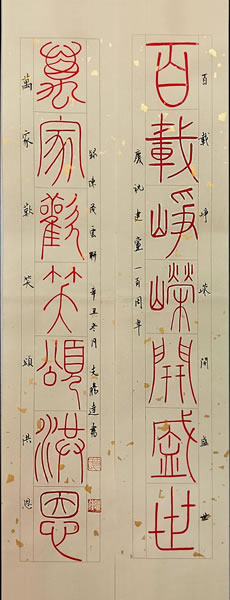 百載崢嶸開盛世
百載崢嶸開盛世
慶祝建黨一百周年
辛丑冬月
萬家歡笑頌洪恩
萬家歡笑頌洪恩